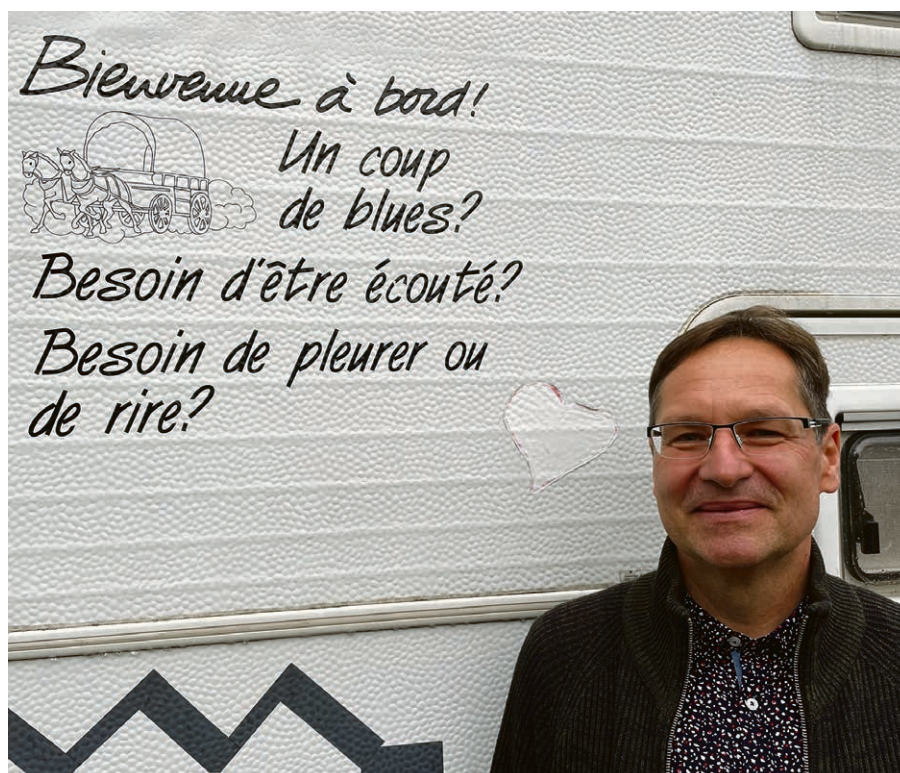 Bienvenue à bord!
Un coup
de blues?
Besoin d'être écouté?
Besoin de pleurer ou
de rire?